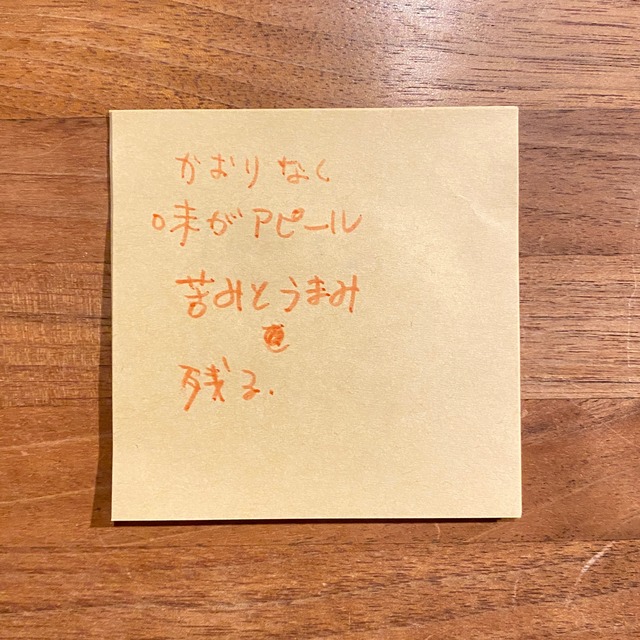 かおりなく
味がアピール
苦みとうまみ
残る.